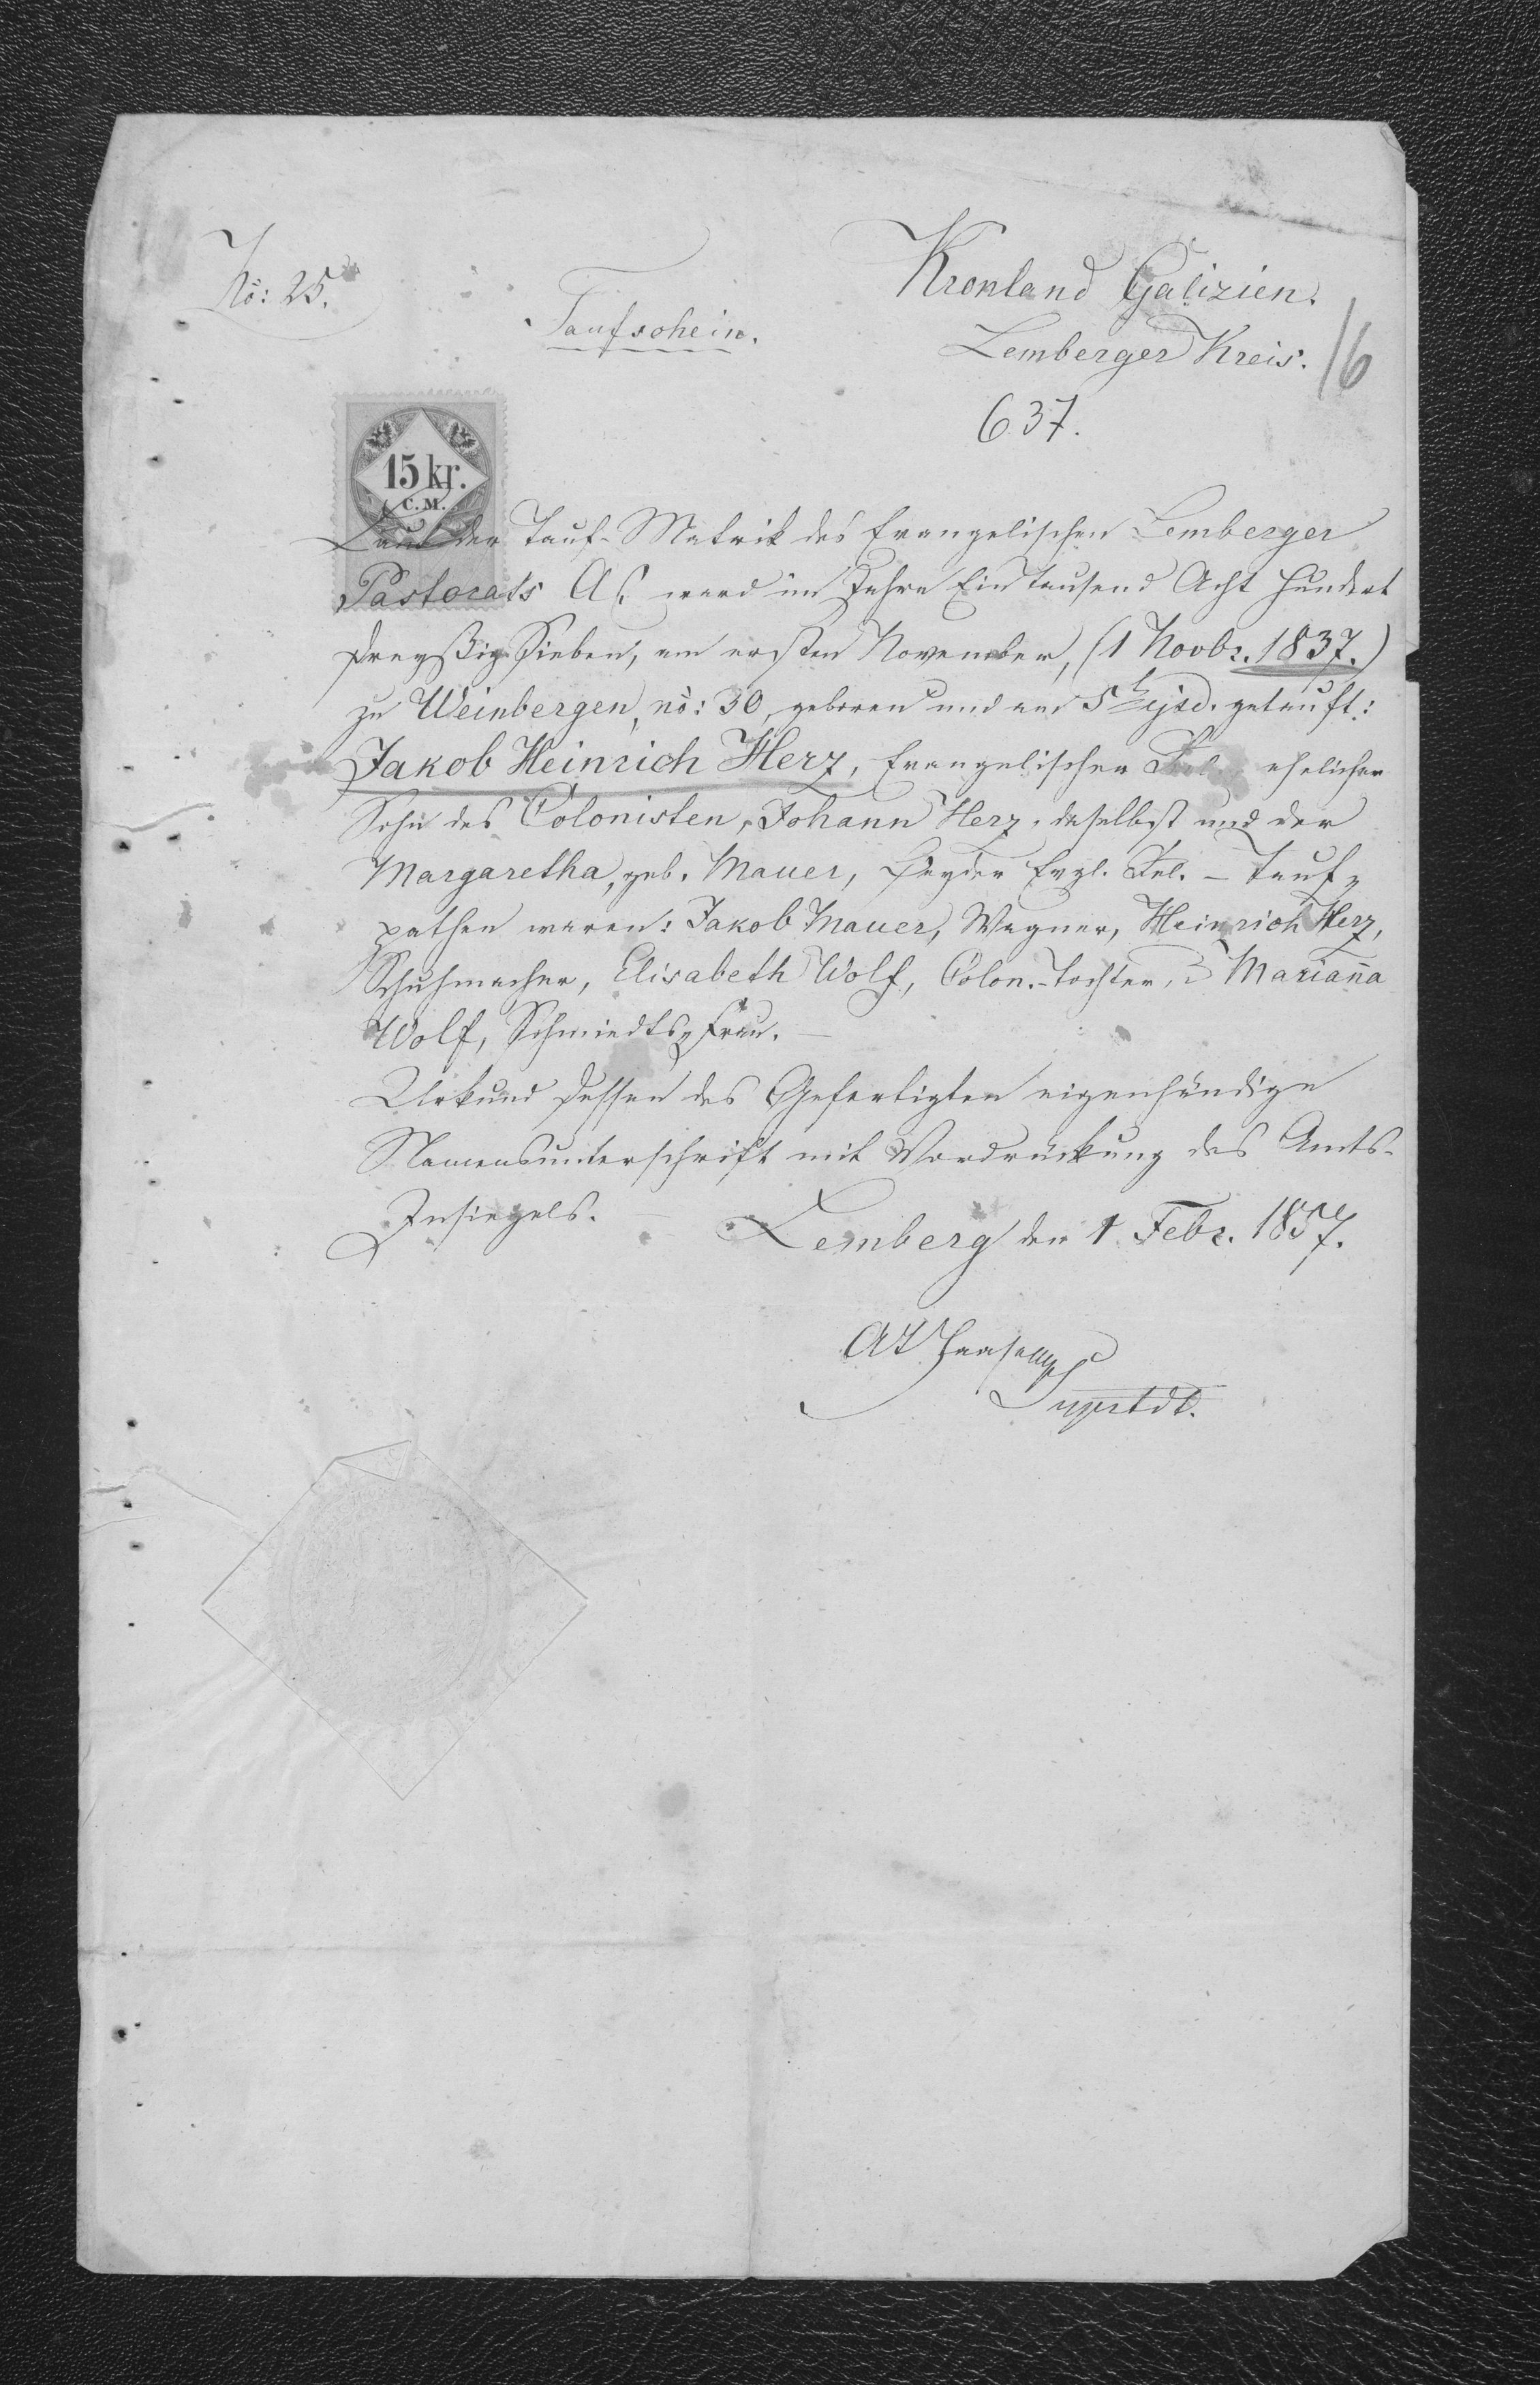 No: 25.
Kronland Galizien.
Taufschein.
Lemberger Kreis.
16
637.
15 kr.
C.M.
Laut der Tauf-Matrik des Evangelischen Lemberger
Pastorats A.C. ward im Jahre Ein tausend Acht Hundert
Dreyßig Sieben, am ersten November, (1 Novbr. 1837.)
zu Weinbergen, no: 30, geboren und am 5t ejsd. getauft:
Jakob Heinrich Herz, Evangelischer Rel. ehelicher
Sohn des Colonisten, Johann Herz, daselbst und der
Margaretha, geb. Mauer, Beyder Evgl. Rel. – Tauf=
pathen waren: Jakob Mauer, Wagner, Heinrich Herz,
Schuhmacher, Elisabeth Wolf, Colon.-Tochter, Marian̄a
Wolf, Schmiedts=Frau. –
Urkund Dessen des Gefertigten eigenhändige
Namensunterschrift mit Vordrückung des Amts-
Insiegels. –
Lemberg den 1 Febr. 1857.
Haase
Suprtdt.